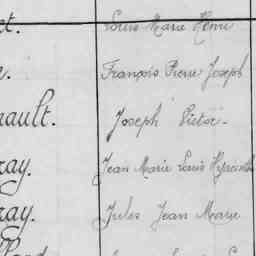 et. Louis Marie Henri
François Pierre Joseph
nault. Joseph Victor
ray. Jean Marie Louis Hyacinthe
ray. Jules Jean Marie